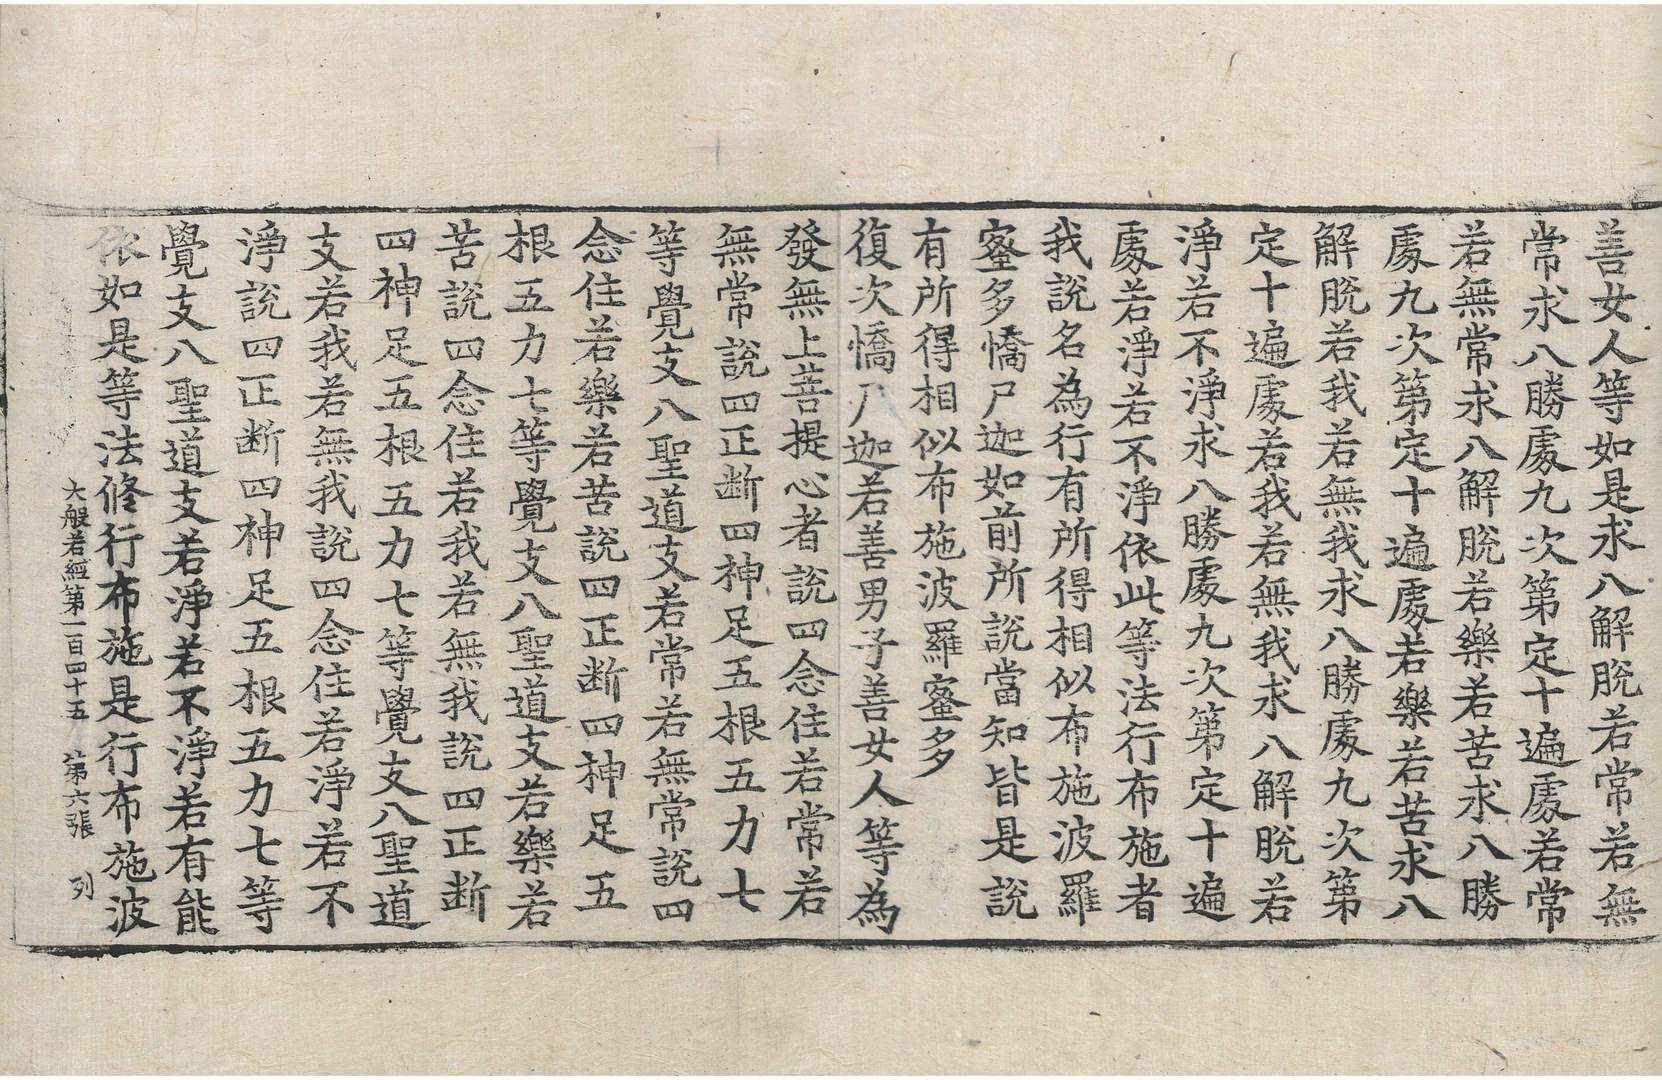 善女人等如是求八解脫若常若無
常求八勝處九次第定十遍處若常
若無常求八解脫若樂若苦求八勝
處九次第定十遍處若樂若苦求八
解脫若我若無我求八勝處九次第
定十遍處若我若無我求八解脫若
淨若不淨求八勝處九次第定十遍
處若淨若不淨依此等法行布施者
我說名為行有所得相似布施波羅
蜜多憍尸迦如前所說當知皆是說
有所得相似布施波羅蜜多
復次憍尸迦若善男子善女人等為
發無上菩提心者說四念住若常若
無常說四正断四神足五根五力七
等覺支八聖道支若常若無常說四
念住若樂若苦說四正断四神足五
根五力七等覺支八聖道支若樂若
苦說四念住若我若無我說四正断
四神足五根五力七等覺支八聖道
支若我若無我說四念住若淨若不
淨說四正断四神足五根五力七等
覺支八聖道支若淨若不淨若有能
依如是等法修行布施是行布施波
大般若經第一百四十五 第六張 列